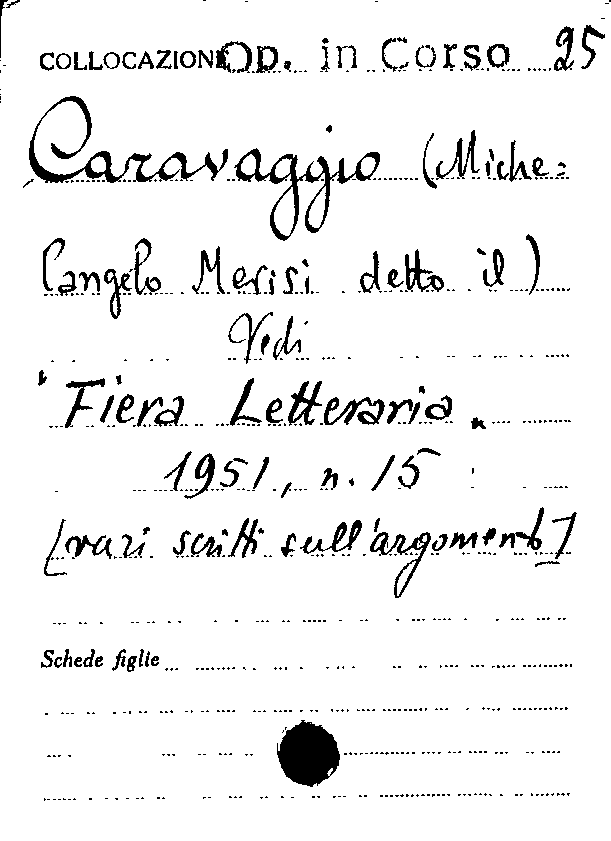 COLLOCAZIONE Op. in Corso 25
Caravaggio (Miche=
langelo Merisi detto il)
Vedi
"Fiera Letteraria"
1951, n. 15
[vari scritti sull'argomento]
Schede figlie